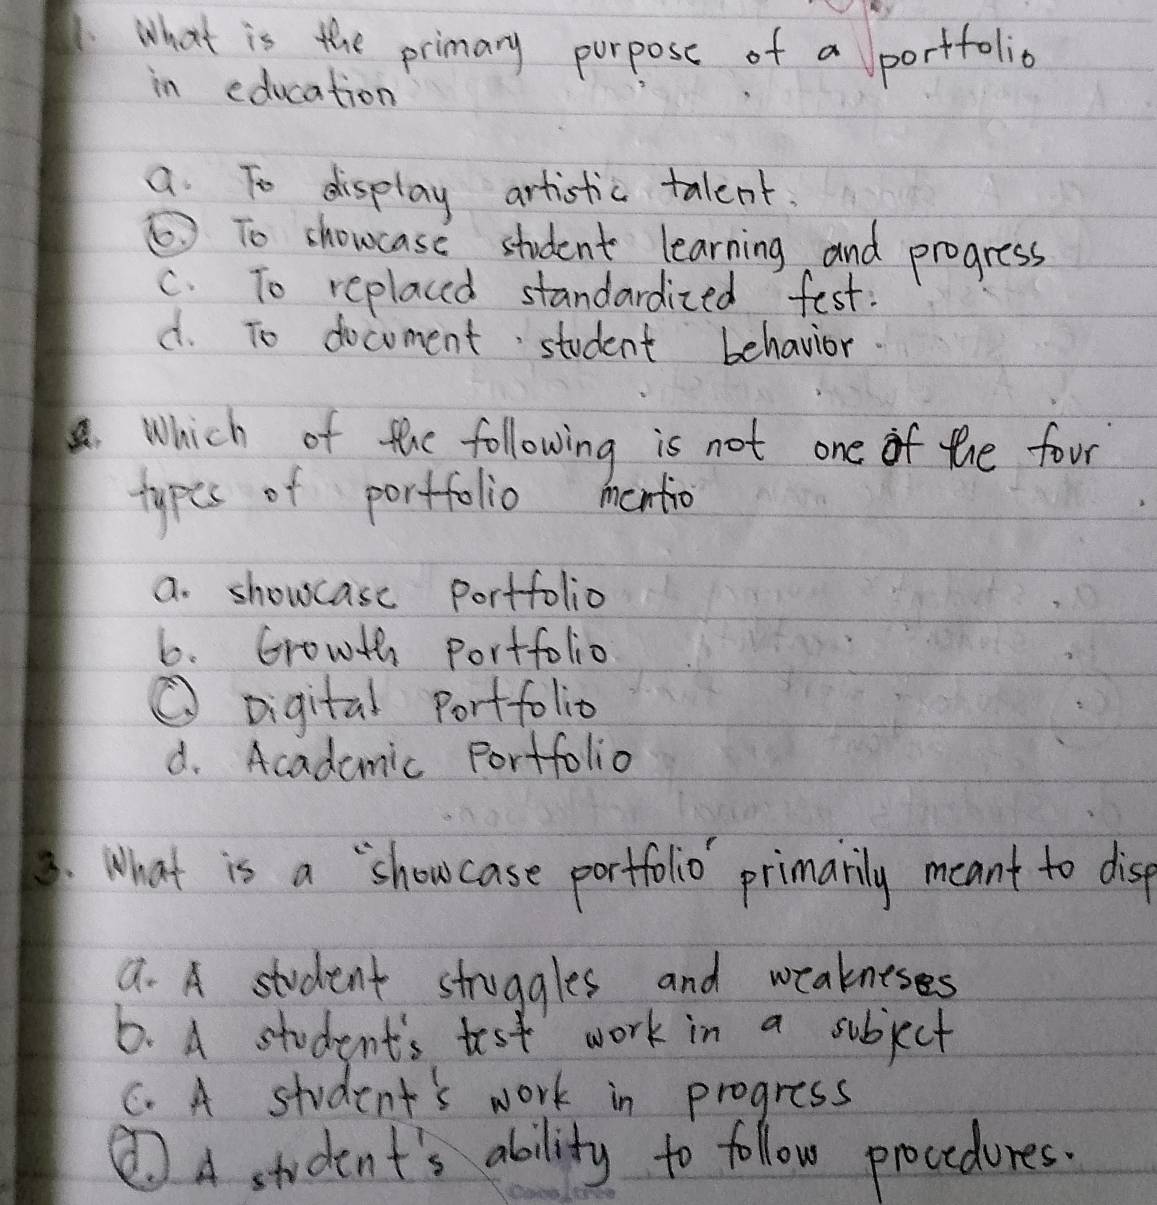 1. What is the primary purpose of a portfolio
in education
a. To display artistic talent.
b. To showcase student learning and progress
c. To replaced standardized test.
d. To document student behavior.
2. Which of the following is not one of the four
types of portfolio mentio
a. showcase Portfolio
b. Growth Portfolio
c. Digital Portfolio
d. Academic Portfolio
3. What is a "showcase portfolio" primarily meant to disp
a. A student struggles and weakneses
b. A student's test work in a subject
c. A student's work in progress
d. A student's ability to follow procedures.